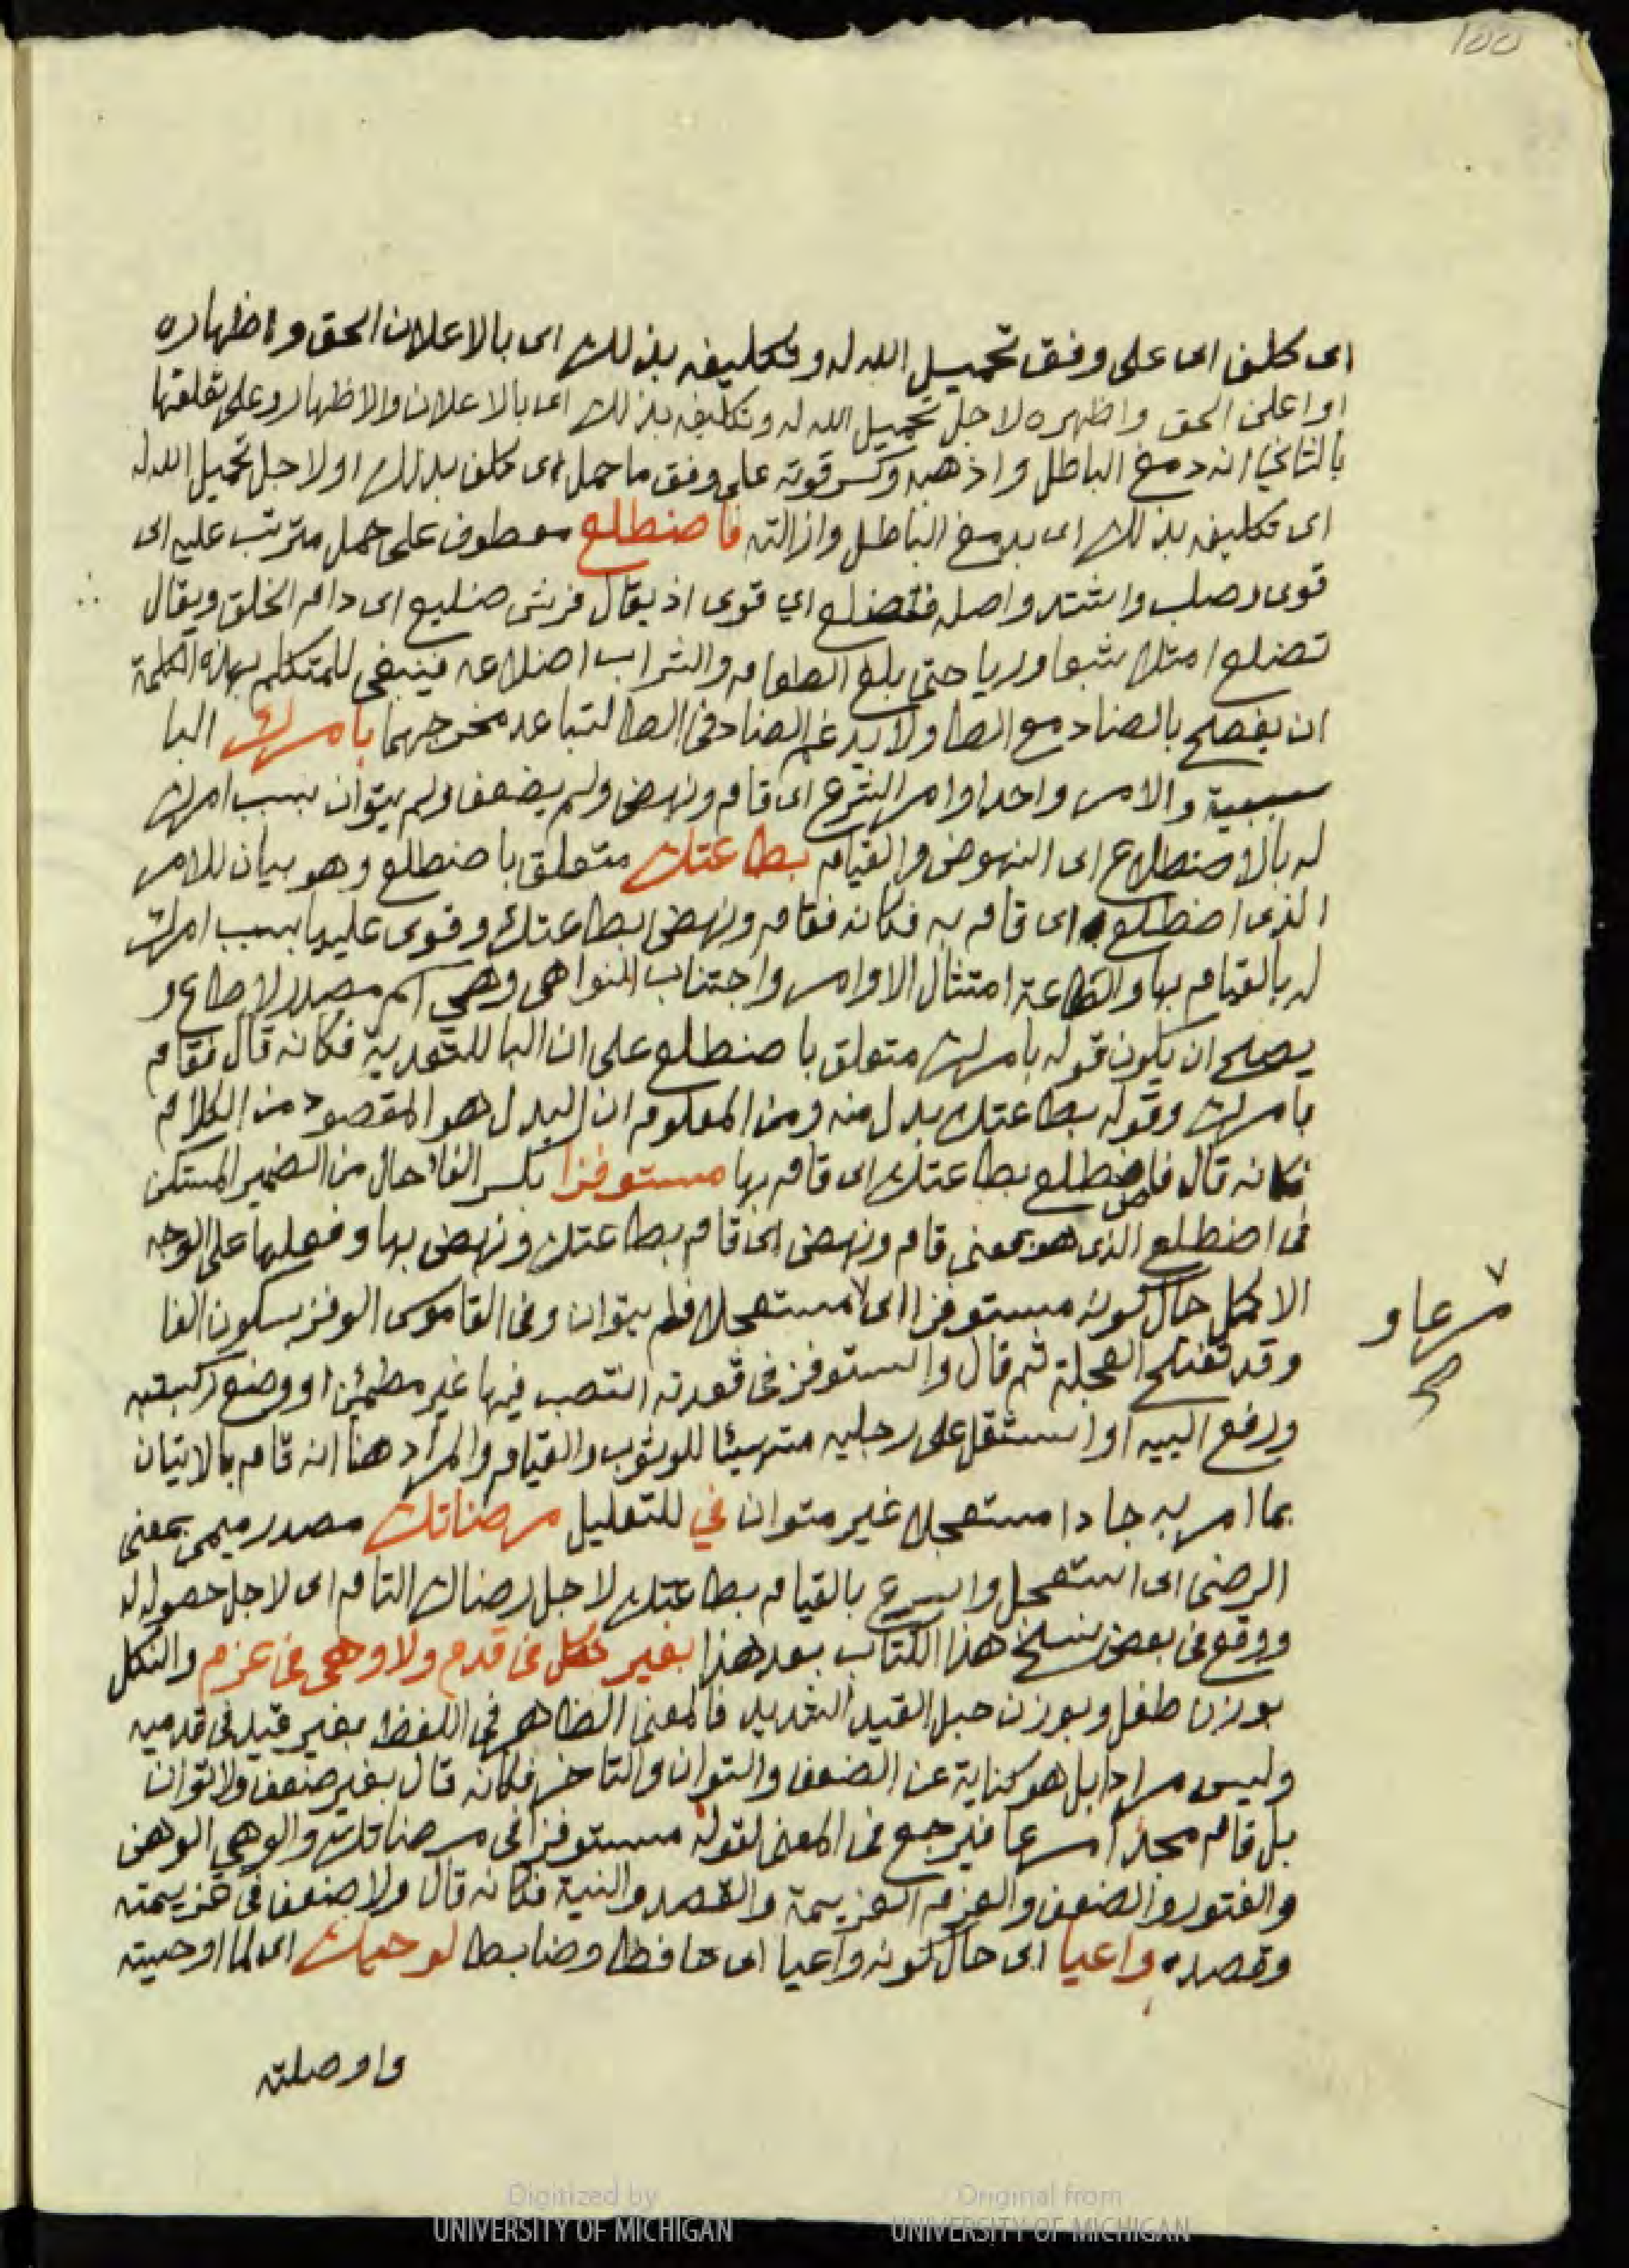 100
اى كلف اى على وفق تحميل الله له وتكليفه بذلك اى بالاعلان الحق واظهاره
او اعلن الحق واظهره لاجل تحميل الله له وتكليفه بذلك اى بالاعلان والاظهار وعلى تعلقها
بالثانى انه دمغ الباطل واذهبه وكسر قوته على وفق ما حمل اى كلف بذلك او لاجل تحميل الله له
اى تكليفه بذلك اى بدمغ الباطل وازالته فاضطلع معطوف على حمل مترتب عليه اى
قوى وصلب واشتد واصله ضلع اي قوى اذ يقال فرس ضليع اى دام الخلق ويقال
تضلع امتلا شبعا وريا حتى بلغ الطعام والشراب اضلاعه فينبغى للمتكلم بهذه الكلمة
ان يفصح بالضاد مع الطا ولا يدغم الضاد فى الطا لتباعد مخرجهما بامرك البا
سببية والامر واحد اوامر الشرع اى قام ونهض ولم يضعف ولم يتوان بسبب امرك
له بالاضطلاع اى النهوض والقيام بطاعتك متعلق باضطلع وهو بيان للامر
الذى اضطلع اى قام به فكانه فقام ونهض بطاعتك وقوى عليها بسبب امرك
له بالقيام بها والطاعة امتثال الاوامر واجتناب النواهى وهى اسم مصدر لاطاع و
يصلح ان يكون قوله بامرك متعلق باضطلع على ان البا للتعدية فكانه قال فقام
بامرك وقوله بطاعتك بدل منه ومن المعلوم ان البدل هو المقصود من الكلام
فكانه قال فاضطلع بطاعتك اى قام بها مستوفزا بكسر الفا حال من الضمير المستكن
فى اضطلع الذى هو بمعنى قام ونهض اى قام بطاعتك ونهض بها وفعلها على الوجه
الاكمل حال كونه مستوفزا اى مستعجلا فلم يتوان وفى القاموس الوفز بسكون الفا
مسرعا و
صح
وقد تفتح العجلة ثم قال واستوفز فى قعدته انتصب فيها غير مطمئن او وضع ركبتيه
ورفع اليتيه او استقل على رجليه متهيئا للوثوب والقيام والمراد هنا انه قام بالاتيان
بما امر به جادا مستعجلا غير متوان في للتعليل مرضاتك مصدر ميمى بمعنى
الرضى اى استعجل واسرع بالقيام بطاعتك لاجل رضاك التام اى لاجل حصوله له
ووقع فى بعض نسخ هذا الكتاب بعد هذا بغير نكل فى قدم ولا وهى فى عزم والنكل
بوزن طفل وبوزن حبل القيد الشديد فالمعنى الظاهر فى اللفظ بغير قيد فى قدميه
وليس مرادا بل هو كناية عن الضعف والتوان والتاخر فكانه قال بغير ضعف ولا توان
بل قام مجدا مسرعا فيرجع فى المعنى لقوله مستوفزا فى مرضاتك والوهي الوهن
والفتور والضعف والعزم العزيمة والقصد والنية فكانه قال ولا ضعف فى عزيمته
وقصده واعيا اى حال كونه واعيا اى حافظا وضابطا لوحيك اى لما اوحيته
واوصلته
Digitized by
UNIVERSITY OF MICHIGAN
Original from
UNIVERSITY OF MICHIGAN